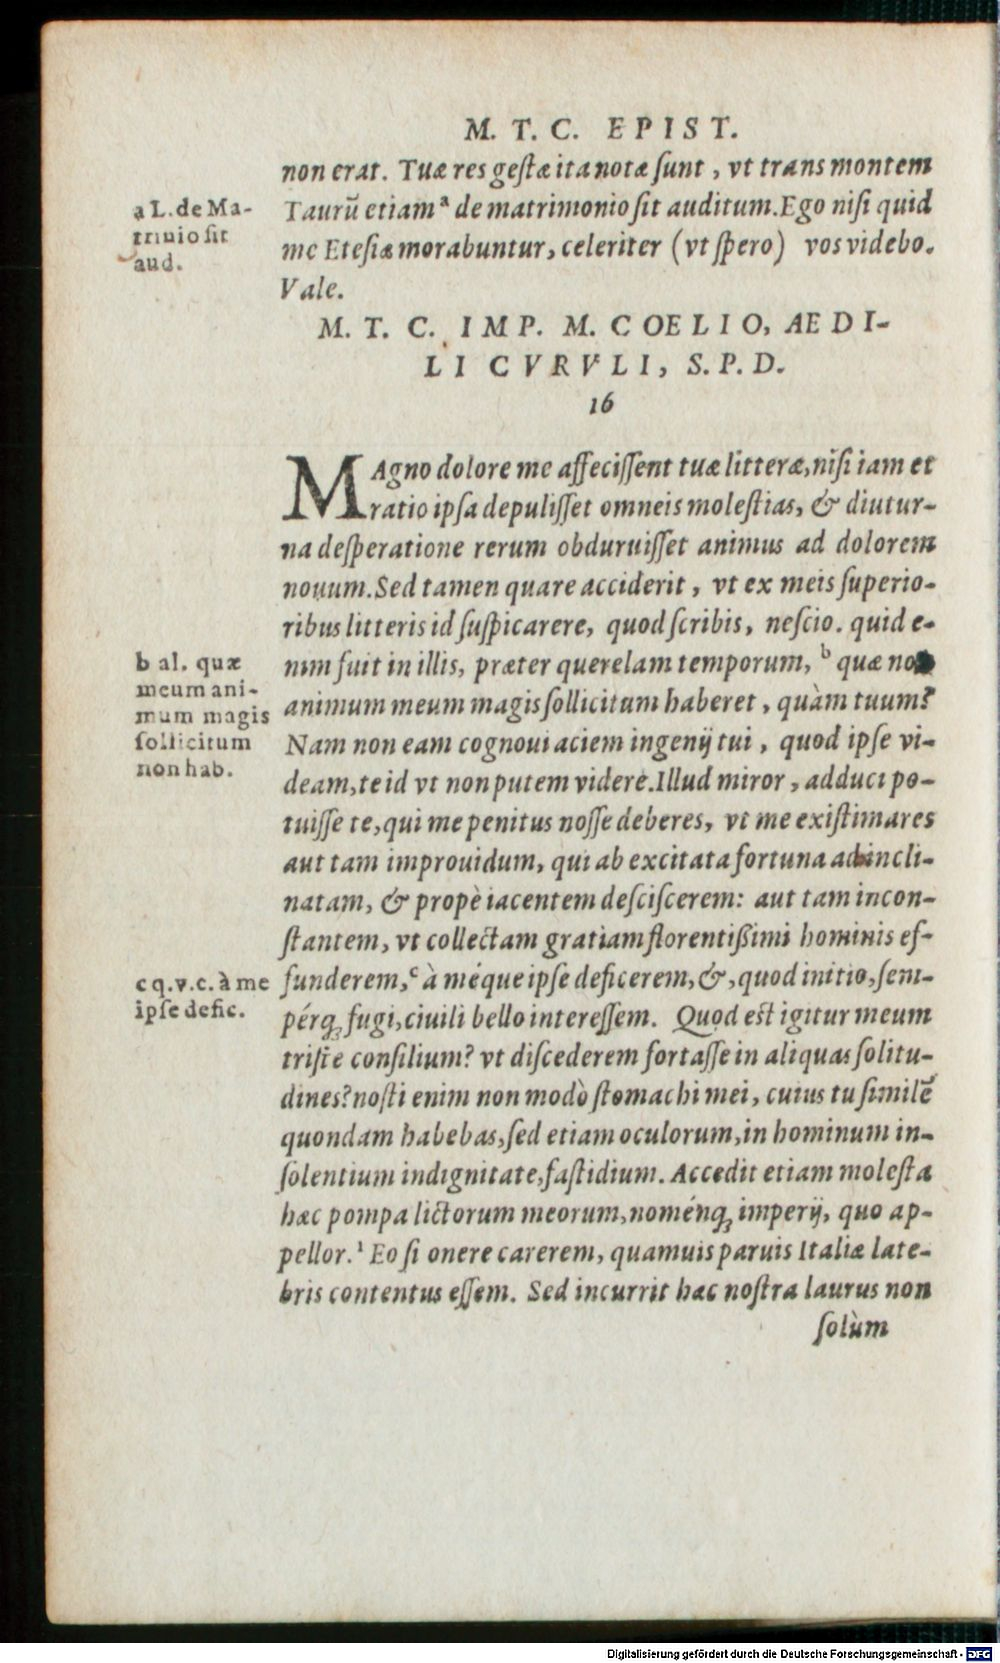 M. T. C. EPIST.
non erat. Tuæ res gestæ ita notæ sunt, vt trans montem
Taurū etiam ᵃ de matrimonio sit auditum. Ego nisi quid
me Etesiæ morabuntur, celeriter (vt spero) vos videbo.
Vale.
a L. de Ma-
trinio sit
aud.
M. T. C. IMP. M. COELIO, AEDI-
LI CVRVLI, S. P. D.
16
MAgno dolore me affecissent tuæ litteræ, nisi iam et
ratio ipsa depulisset omneis molestias, & diutur-
na desperatione rerum obduruisset animus ad dolorem
nouum. Sed tamen quare acciderit, vt ex meis superio-
ribus litteris id suspicarere, quod scribis, nescio. quid e-
nim fuit in illis, præter querelam temporum, ᵇ quæ non
animum meum magis sollicitum haberet, quàm tuum?
Nam non eam cognoui aciem ingenij tui, quod ipse vi-
deam, te id vt non putem videre. Illud miror, adduci po-
tuisse te, qui me penitus nosse deberes, vt me existimares
aut tam improuidum, qui ab excitata fortuna ad incli-
natam, & propè iacentem desciscerem: aut tam incon-
stantem, vt collectam gratiam florentißimi hominis ef-
funderem, ᶜ à méque ipse deficerem, &, quod initio, sem-
pérq́; fugi, ciuili bello interessem. Quod est igitur meum
triste consilium? vt discederem fortasse in aliquas solitu-
dines? nosti enim non modò stomachi mei, cuius tu similē
quondam habebas, sed etiam oculorum, in hominum in-
solentium indignitate, fastidium. Accedit etiam molesta
hæc pompa lictorum meorum, noménq́; imperij, quo ap-
pellor. ¹ Eo si onere carerem, quamuis paruis Italiæ late-
bris contentus essem. Sed incurrit hæc nostra laurus non
solùm
b al. quæ
meum ani-
mum magis
sollicitum
non hab.
c q. v. c. à me
ipse defic.
Digitalisierung gefördert durch die Deutsche Forschungsgemeinschaft - DFG